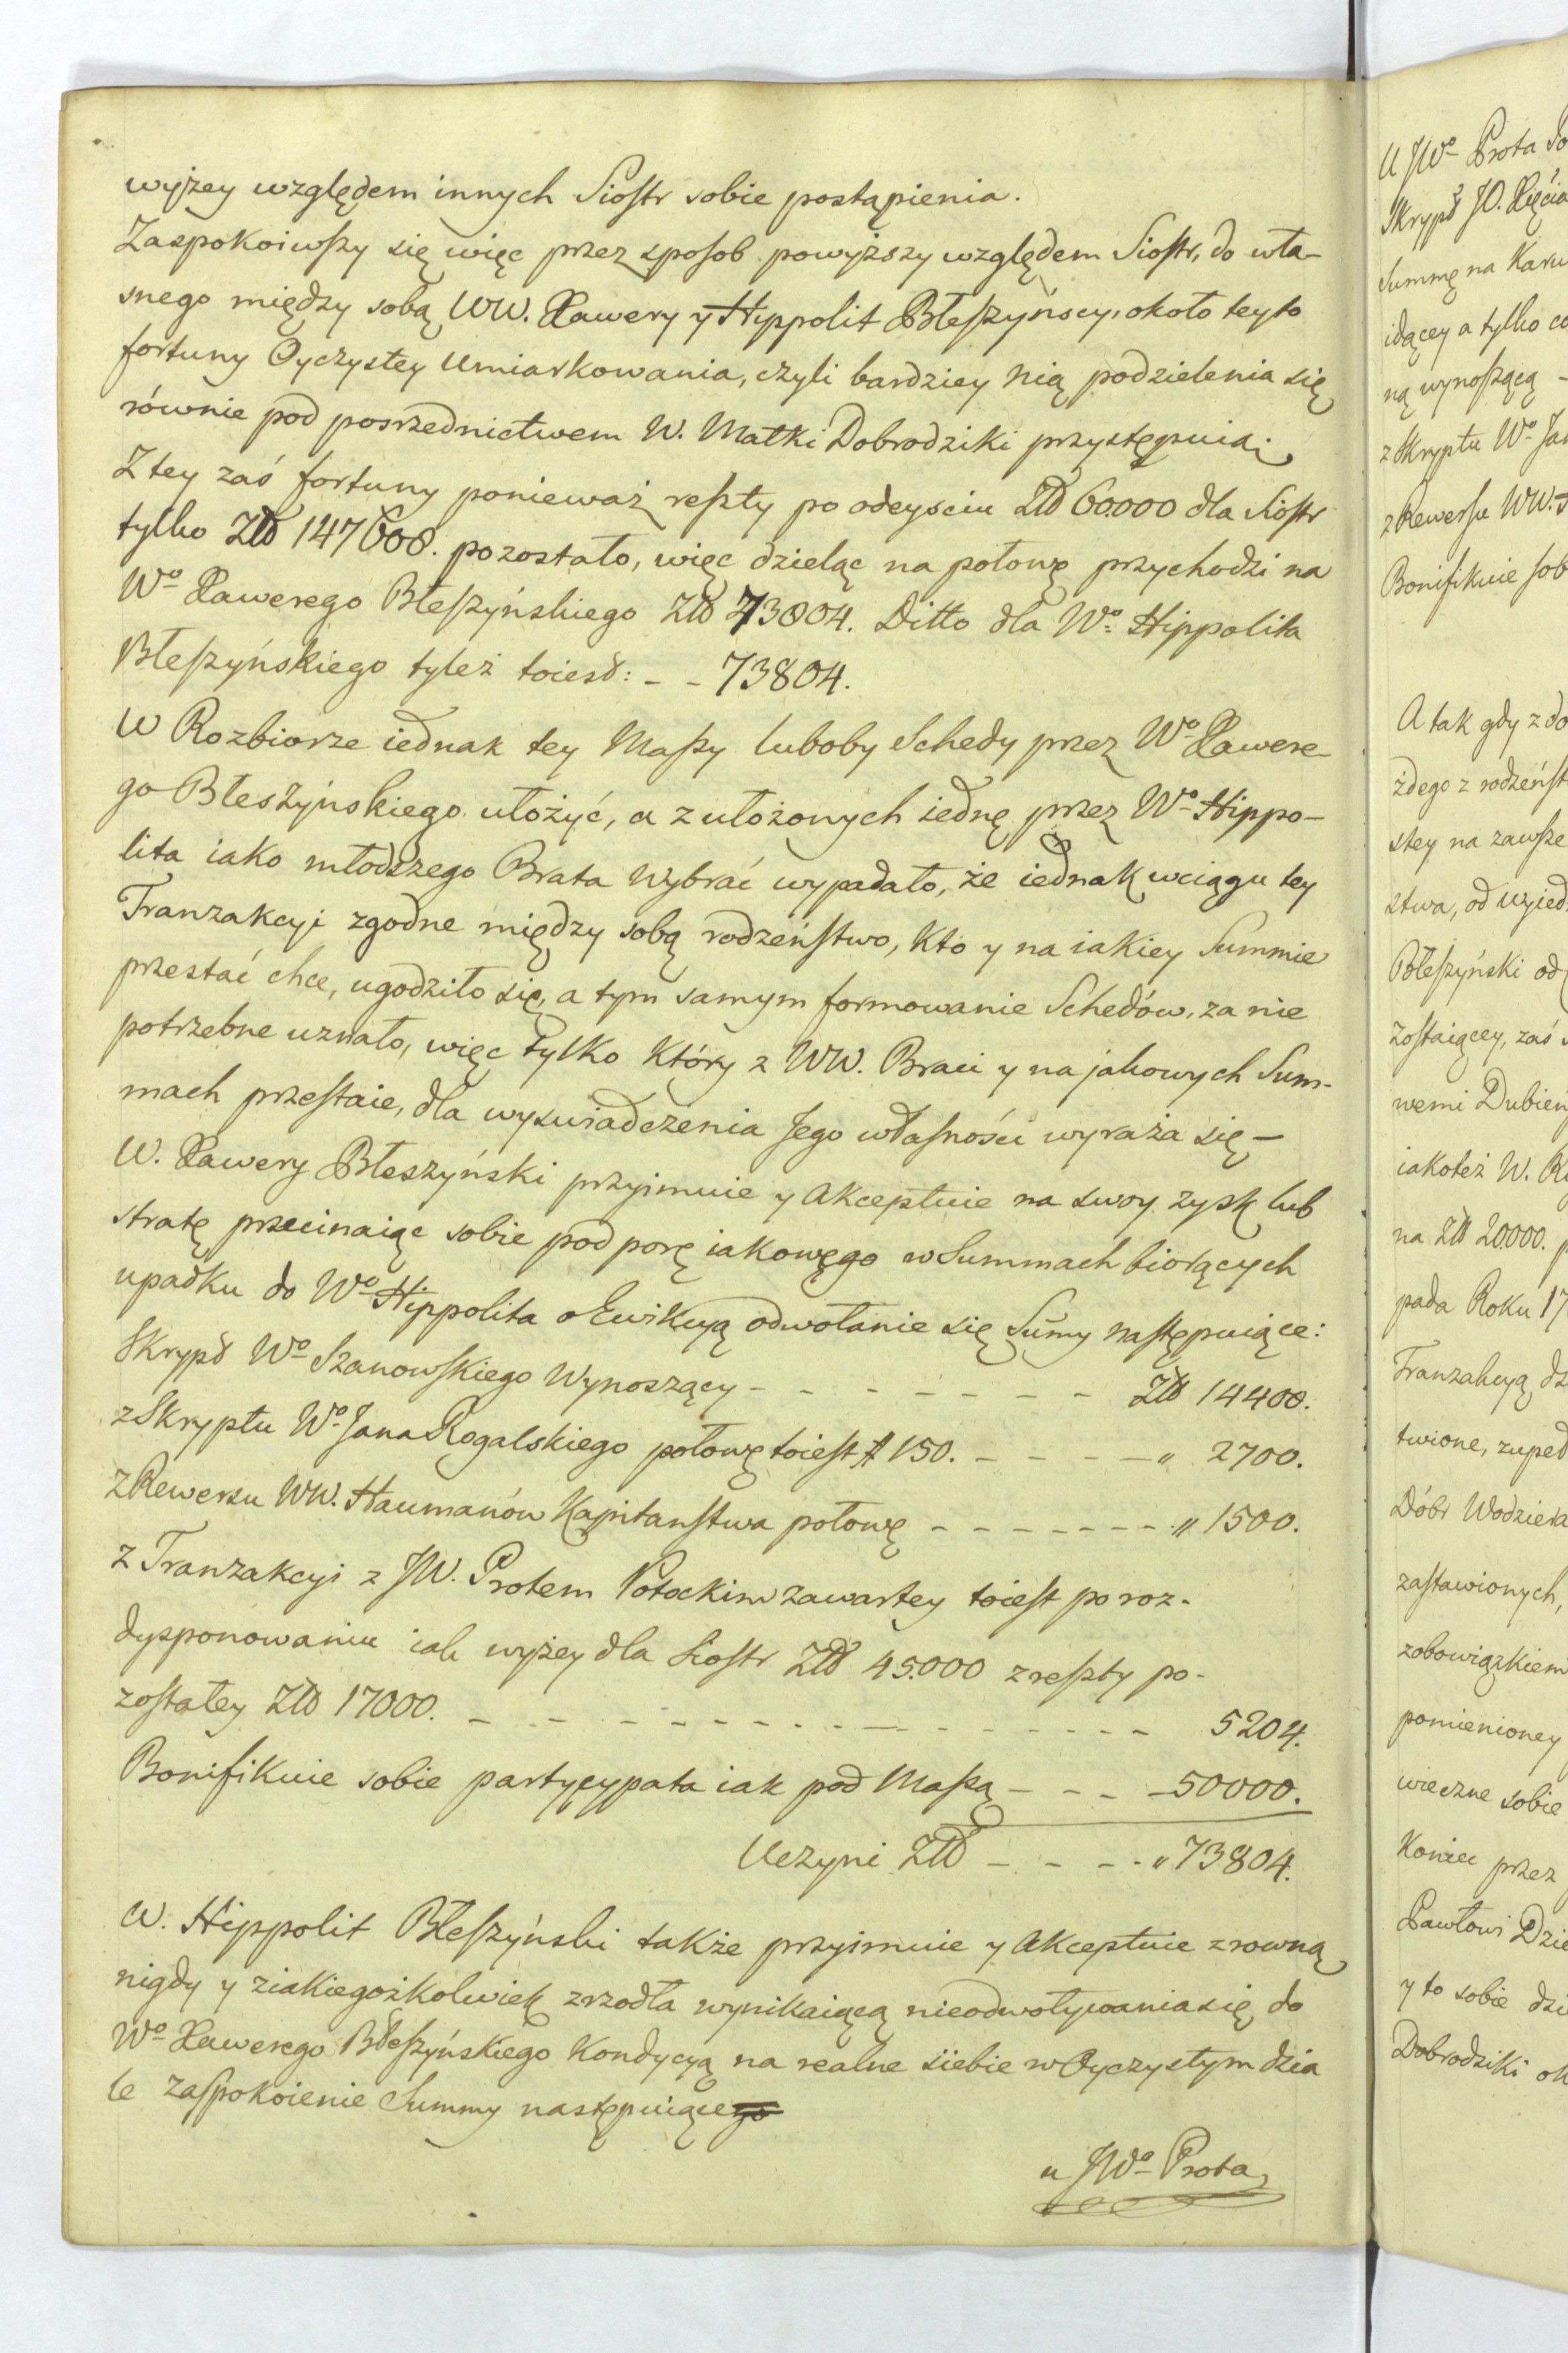 wyżey względem innych Siostr sobie postąpienia.
Zaspokoiwszy się więc przez sposob powyższy względem Siostr, do wła-
snego między sobą WW. Xawery y Hyppolit Błeszyńscy, około teyto
fortuny Oyczystey Umiarkowania, czyli bardziey nią podzielenia się
równie pod posrzednictwem W. Matki Dobrodziki przystępuią.
Z tey zaś fortuny ponieważ reszty po odeysciu Złt 60.000 dla Siostr
tylko Złt 147608. pozostało, więc dzieląc na połowę przychodzi na
Wo Xawerego Błeszyńskiego Złt 73804. Ditto dla Wo Hippolita
Błeszyńskiego tyleż toiesd: - - 73804.
W Rozbiorze iednak tey Massy luboby Schedy przez Wo Xawere-
go Błeszyńskiego ułożyć, a z ułożonych iednę przez Wo Hippo-
lita iako młodszego Brata Wybrać wypadało, że iednak wciągu tey
Tranzakcyi zgodne między sobą rodzeństwo, kto y na iakiey Summie
przestać chce, ugodziło się, a tym samym formowanie Schedów, za nie
potrzebne uznało, więc tylko który z WW. Braci y na jakowych Sum-
mach przestaie, dla wyswiadczenia Jego własności wyraża się -
W. Xawery Błeszyński przyimuie y Akceptuie na swoy zysk lub
stratę przecinaiąc sobie pod porę iakowęgo w Summach biorących
upadku do Wo Hippolita o Ewikcyą odwołanie się Sum̄y następuiące:
Skrypd Wo Szanowskiego Wynoszący - - - - - - - - Złt 14400.
z Skryptu Wo Jana Rogalskiego połowę toiest # 150. - - - - " 2700.
z Rewersu WW. Haumanów Kapitanstwa połowę - - - - - - - " 1500.
z Tranzakcyi z JW. Protem Potockim zawartey toiest po roz-
dysponowaniu iak wyżey dla Siostr Złt 45.000 z reszty po-
zostałey Złt 17000. - - - - - - - - - - - - - - - - 5204.
Bonifikuie sobie partycypata iak pod Massą - - - - 50000.
Uczyni Złt - - - - " 73804.
W. Hippolit Błeszyński także przyimuie y Akceptuie z rowną
nigdy y ziakiegożkolwiek zrzodła wynikaiącą nieodwoływania się do
Wo Xawerego Błeszyńskiego Kondycyą na realne siebie w Oyczystym dzia
le zaspokoienie Summy następuiącego
u JWo Prota
U JWo Prota
Skrypd JO. Xięcia
Summę na
idącey a tylko co
ną wynoszącą -
z Skryptu Wo Jan
z Rewersu WW.
Bonifikuie sob
A tak gdy z do
żdego z rodzeńst
stey na zawsze
stwa, od
Błeszyński od
zostaiącey, zaś
wemi Dubien
iakoteż W.
na Złt 20.000.
pada Roku 17
Tranzakcyą dz
twione, zupeł
Dóbr Wodziera
zastawionych,
zobowiązkiem
pomienioney
wieczne sobie
Koniec przez
Pawłowi Dzie
y to sobie dzi
Dobrodziki ok